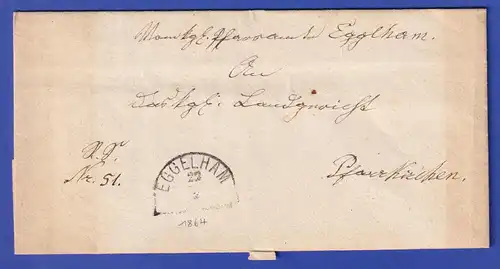 Vom kgl. Pfarramte Egglham.
An
das kgl. Landgericht
R. S.
Nr. 51.
Pfarrkirchen.
EGGELHAM
1864